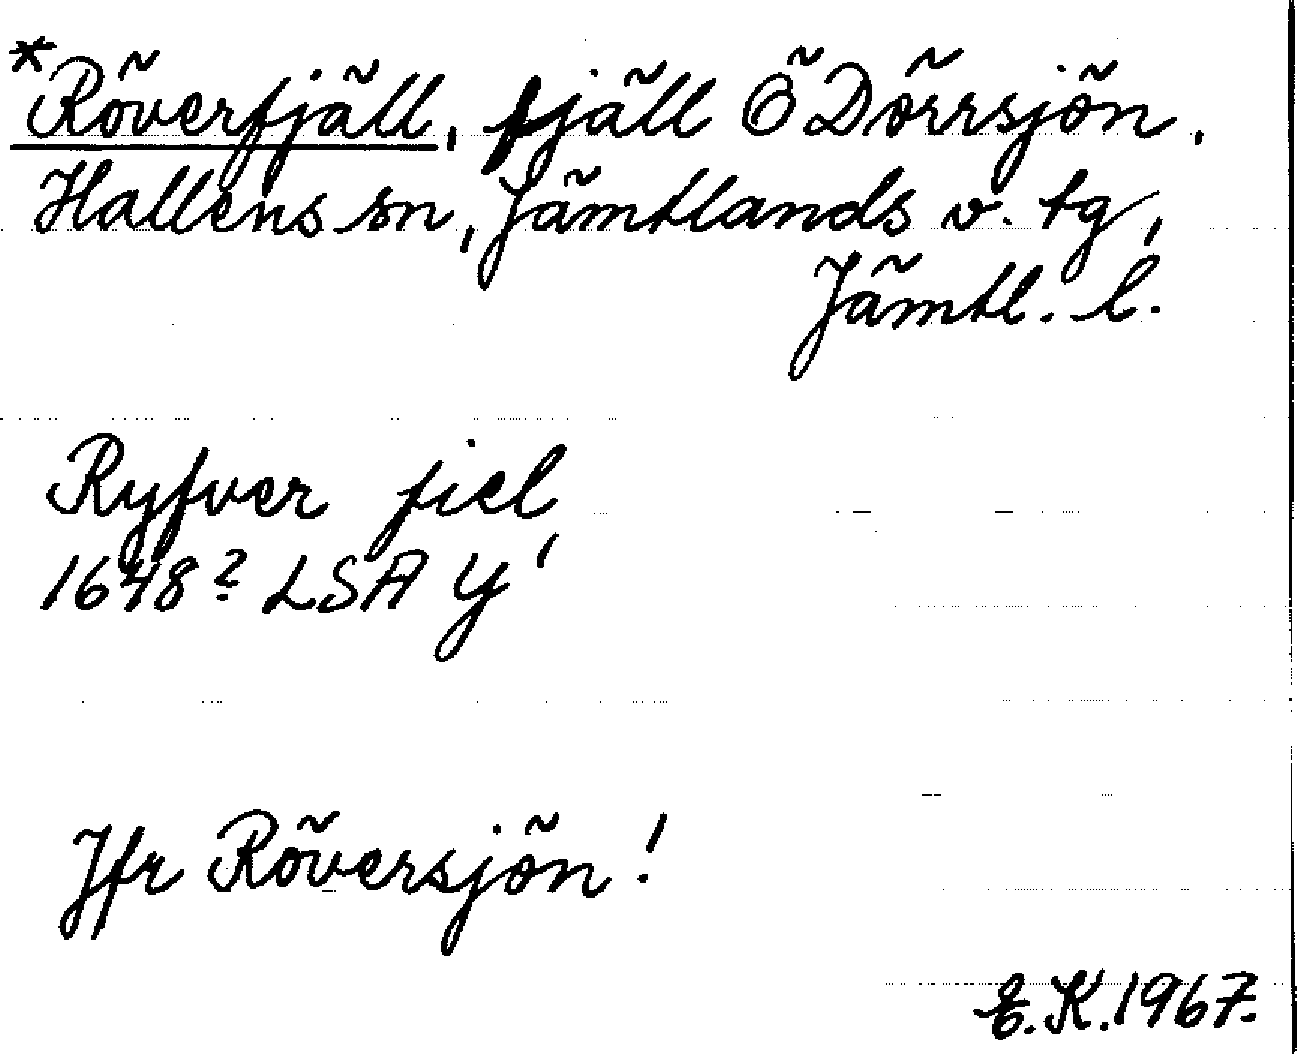 *Röverfjäll, fjäll Ö Dörrsjön,
Hallens sn, Jämtlands v. tg,
Jämtl. l.
Ryfver fiel
1648? LSA Y1
Jfr Röversjön!
E.K. 1967.